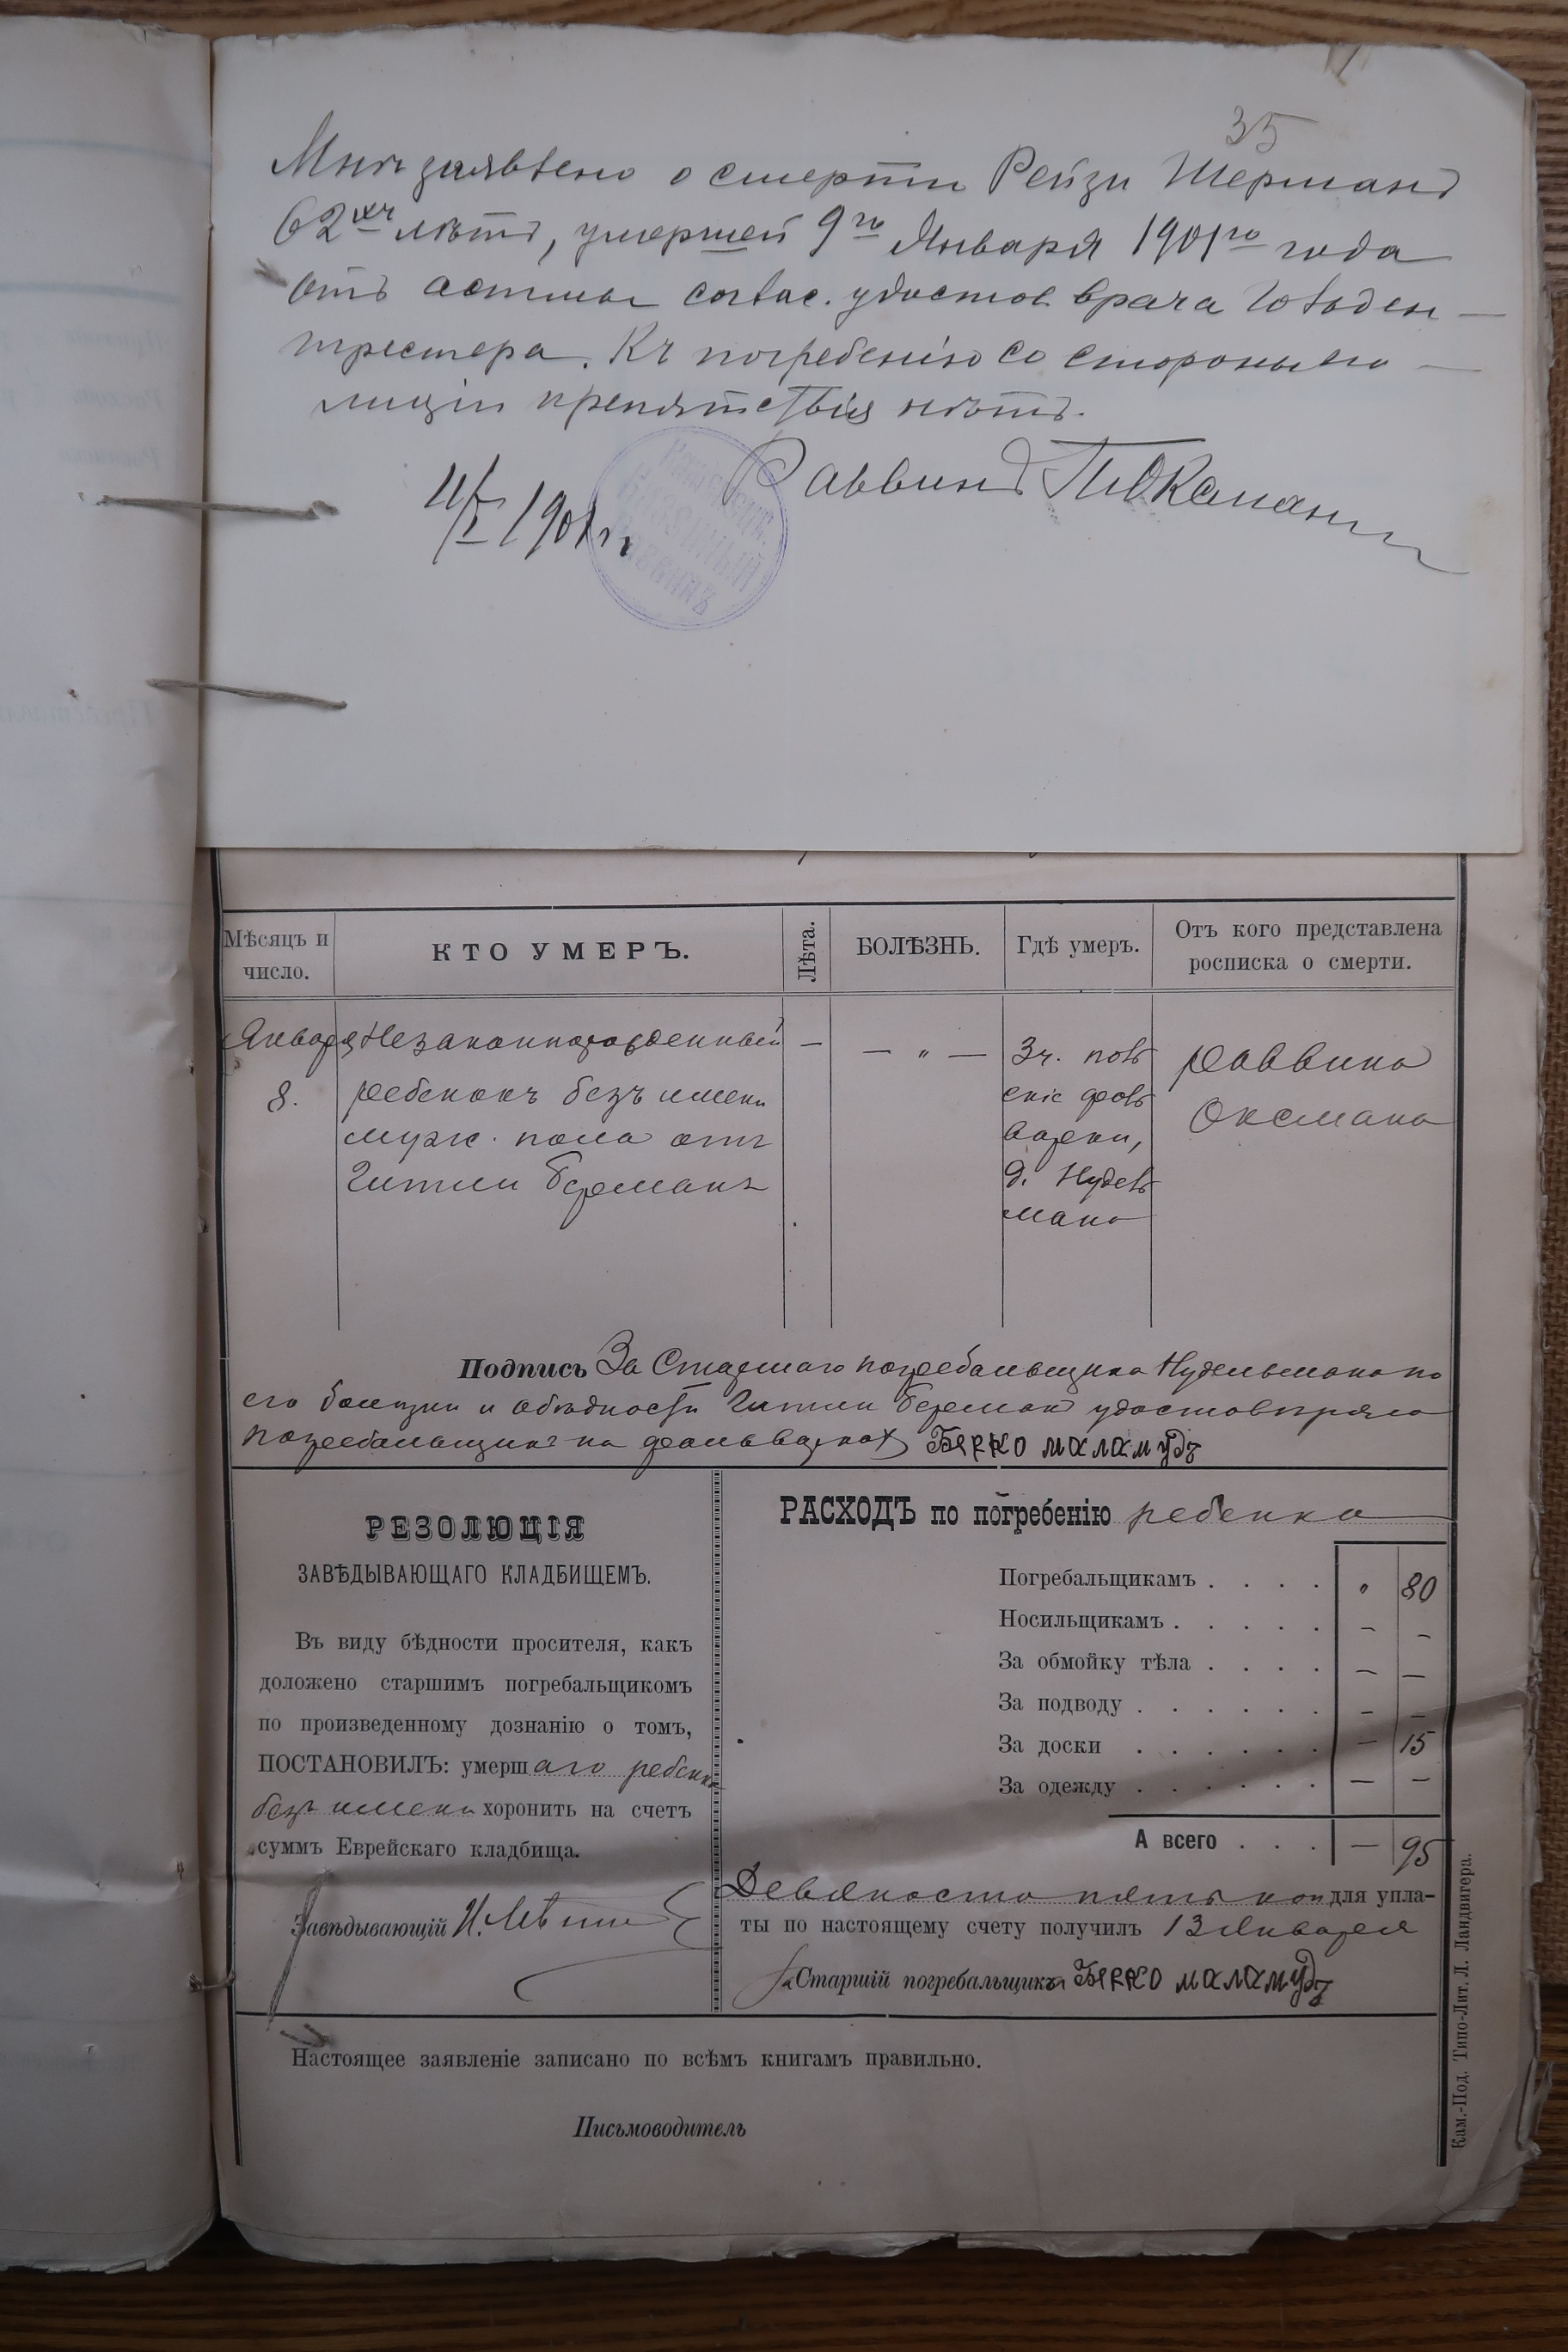 35
Мнѣ заявлено о смерти Рейзи Шерманъ
62хъ лѣтъ, умершей 9го Января 1901го года
отъ астмы соглас. удостов. врача Гольден-
трестера. Къ погребенію со стороны по-
лиціи препятствія нѣтъ.
Раввинъ
11/I 1901 г.
КАЗЕННЫЙ
Раввинъ
Мѣсяцъ и число.
КТО УМЕРЪ.
Лѣта.
БОЛѢЗНЬ.
Гдѣ умеръ.
Отъ кого представлена росписка о смерти.
Января
8.
Незаконнорожденный
ребенокъ безъ имени
муж. пола отъ
Гитли Берманъ
—
— „ —
Зч. поль
скіе фоль
варки,
д. Нудель
мана
раввина
Оксмана
Подпись За Старшаго погребальщика Нудельмана по
его болѣзни и о бѣдности Гитли Берманъ удостовѣряю
погребальщикъ на фольваркахъ Берко маламудъ
РЕЗОЛЮЦІЯ
ЗАВѢДЫВАЮЩАГО КЛАДБИЩЕМЪ.
Въ виду бѣдности просителя, какъ
доложено старшимъ погребальщикомъ
по произведенному дознанію о томъ,
ПОСТАНОВИЛЪ: умершаго ребенка
безъ имени хоронить на счетъ
суммъ Еврейскаго кладбища.
Завѣдывающій
РАСХОДЪ по погребенію ребенка
Погребальщикамъ . . . . „ 80
Носильщикамъ . . . . . – –
За обмойку тѣла . . . . – –
За подводу . . . . . . – –
За доски . . . . . . – 15
За одежду . . . . . . – –
А всего . . . – 95
Девяносто пять коп для упла-
ты по настоящему счету получилъ 13 Января
За Старшій погребальщика Берко маламудъ
Настоящее заявленіе записано по всѣмъ книгамъ правильно.
Письмоводитель
Кам.-Под. Типо-Лит. Л. Ландвигера.